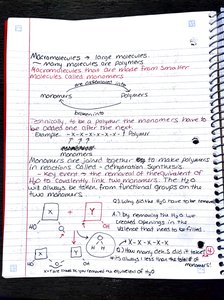 Macromolecules → large molecules
→ many molecules are polymers
Macromolecules that are made from smaller
molecules called monomers
are combined into
monomers polymers
broken into
Technically, to be a polymer the monomers have to
be bonded one after the next
Example: -X-X-X-X-X- ? Polymer
monomers
Monomers are joined together to make polymers
in reactions called - Dehydration Synthesis
- Key event → the removal of the equivalent of
H₂O to covalently link two monomers. The H₂O
will always be taken from functional groups on the
two monomers.
Q: Why did the H₂O have to be removed
X Y
A: By removing the H₂O we
created openings in the
Valence that need to be filled
HO
H H
-X-X-X-X
Q: How many did it take?
is always 1 less than the
HO X Y
you removed the equivalent of H₂O